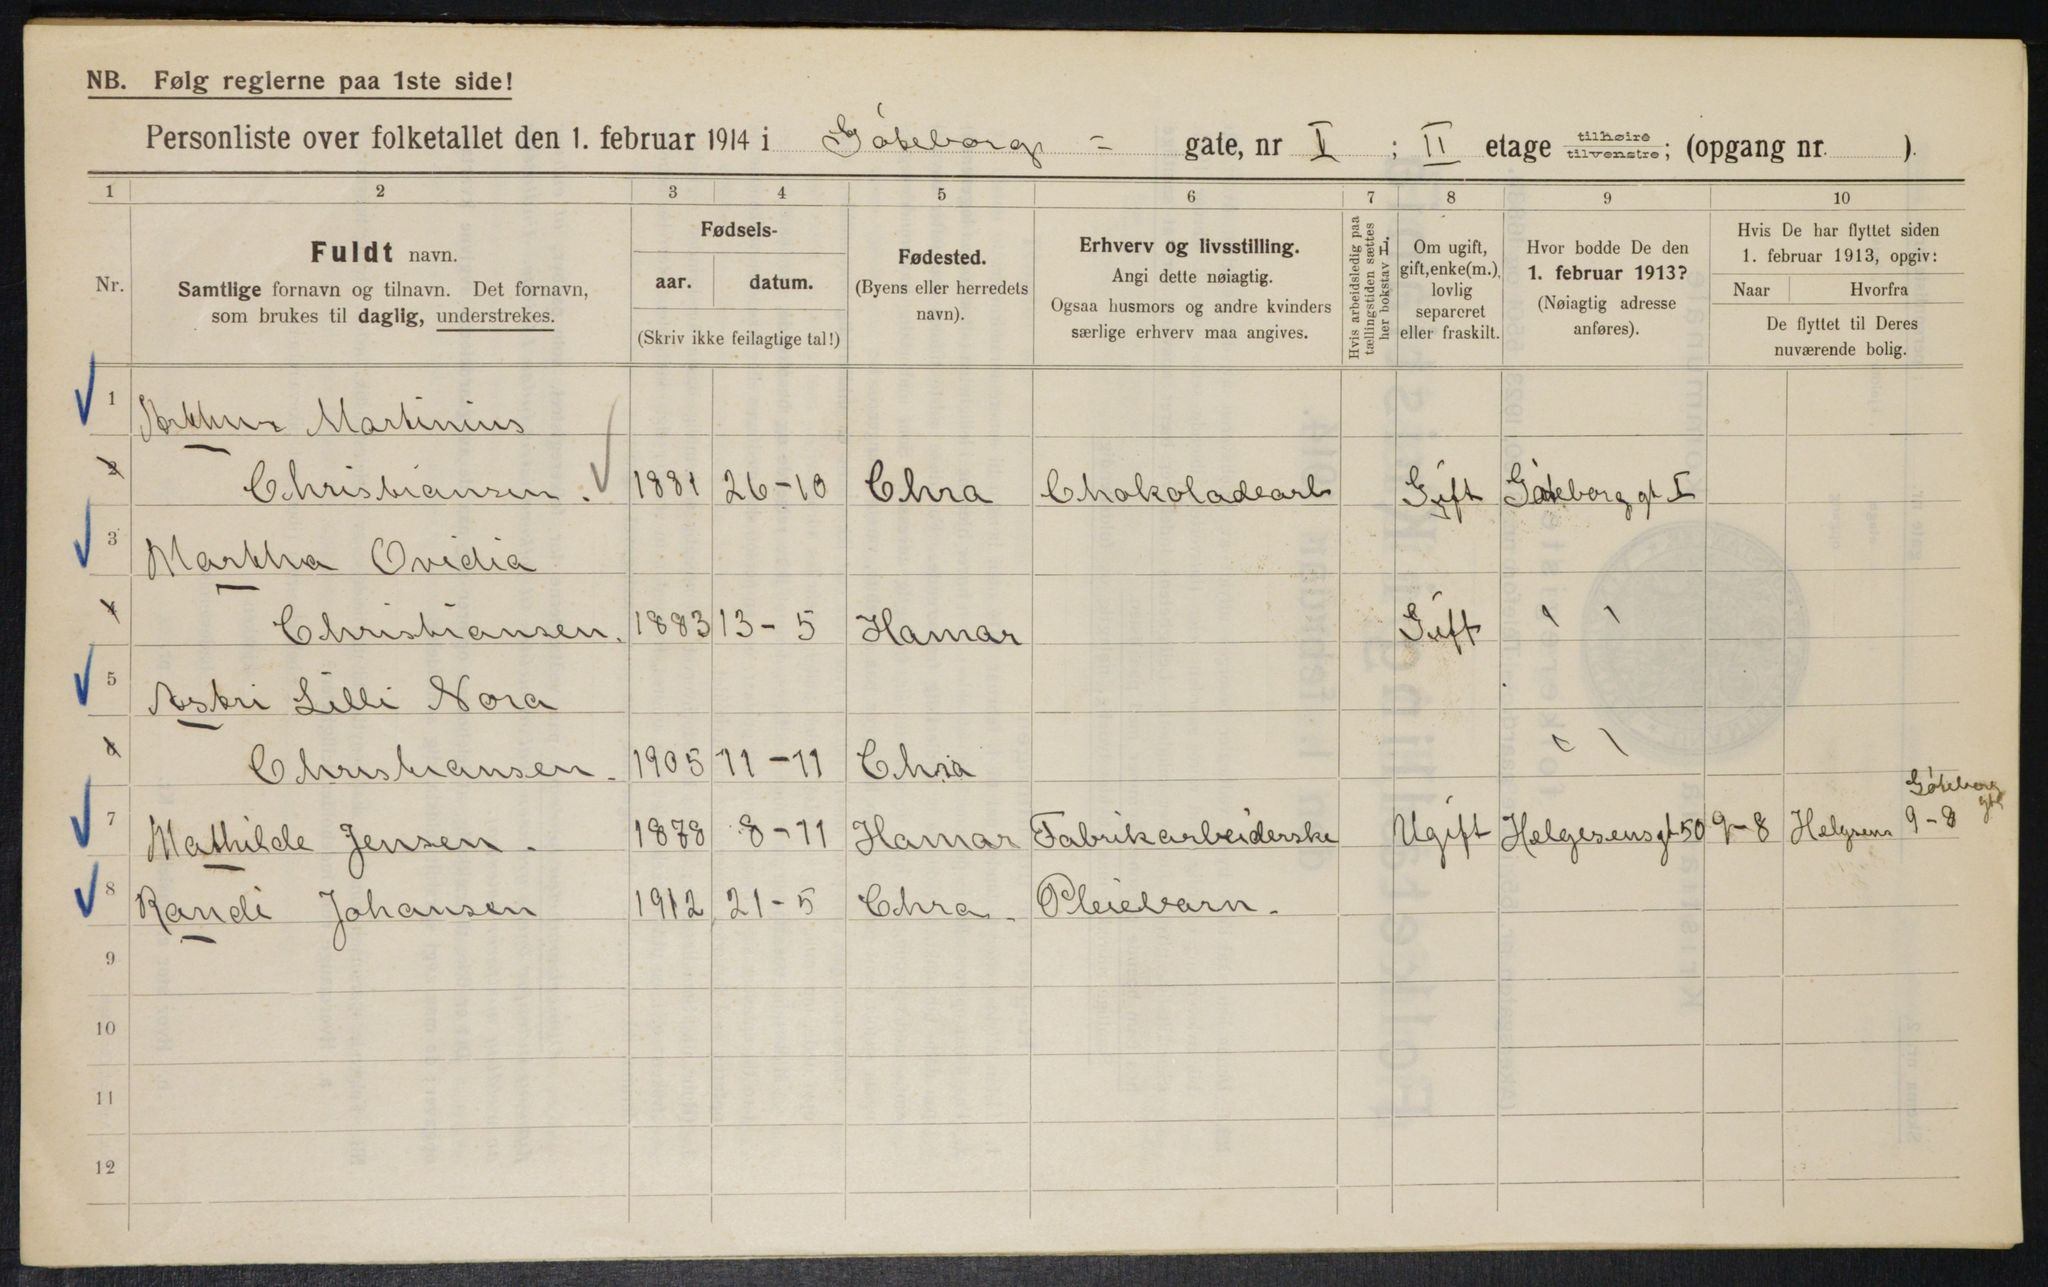 NB. Følg reglerne paa 1ste side!
Personliste over folketallet den 1. februar 1914 i Göteborg - gate, nr I ; II etage tilhøire/tilvenstre; (opgang nr. ).
1 2 3 4 5 6 7 8 9 10
Nr.
Fuldt navn.
Samtlige fornavn og tilnavn. Det fornavn,
som brukes til daglig, understrekes.
Fødsels-
aar. datum.
(Skriv ikke feilagtige tal!)
Fødested.
(Byens eller herredets
navn).
Erhverv og livsstilling.
Angi dette nøiagtig.
Ogsaa husmors og andre kvinders
særlige erhverv maa angives.
Hvis arbeidsledig paa
tællingstiden sættes
her bokstav L.
Om ugift,
gift, enke(m.),
lovlig
separeret
eller fraskilt.
Hvor bodde De den
1. februar 1913?
(Nøiagtig adresse
anføres).
Hvis De har flyttet siden
1. februar 1913, opgiv:
Naar Hvorfra
De flyttet til Deres
nuværende bolig.
1 Arthur Martinius
2 Christiansen. 1881 26-10 Chra Chokoladearb Gift Göteborg gt I
3 Martha Ovidia
4 Christiansen. 1883 13-5 Hamar Gift " "
5 Astri Lilli Nora
6 Christiansen. 1905 11-11 Chra " "
7 Mathilde Jensen. 1878 8-11 Hamar Fabrikarbeiderske Ugift Helgesensgt 50 9-8 Helgsens Göteborg gt 9-8
8 Randi Johansen 1912 21-5 Chra. Pleiebarn.
9
10
11
12